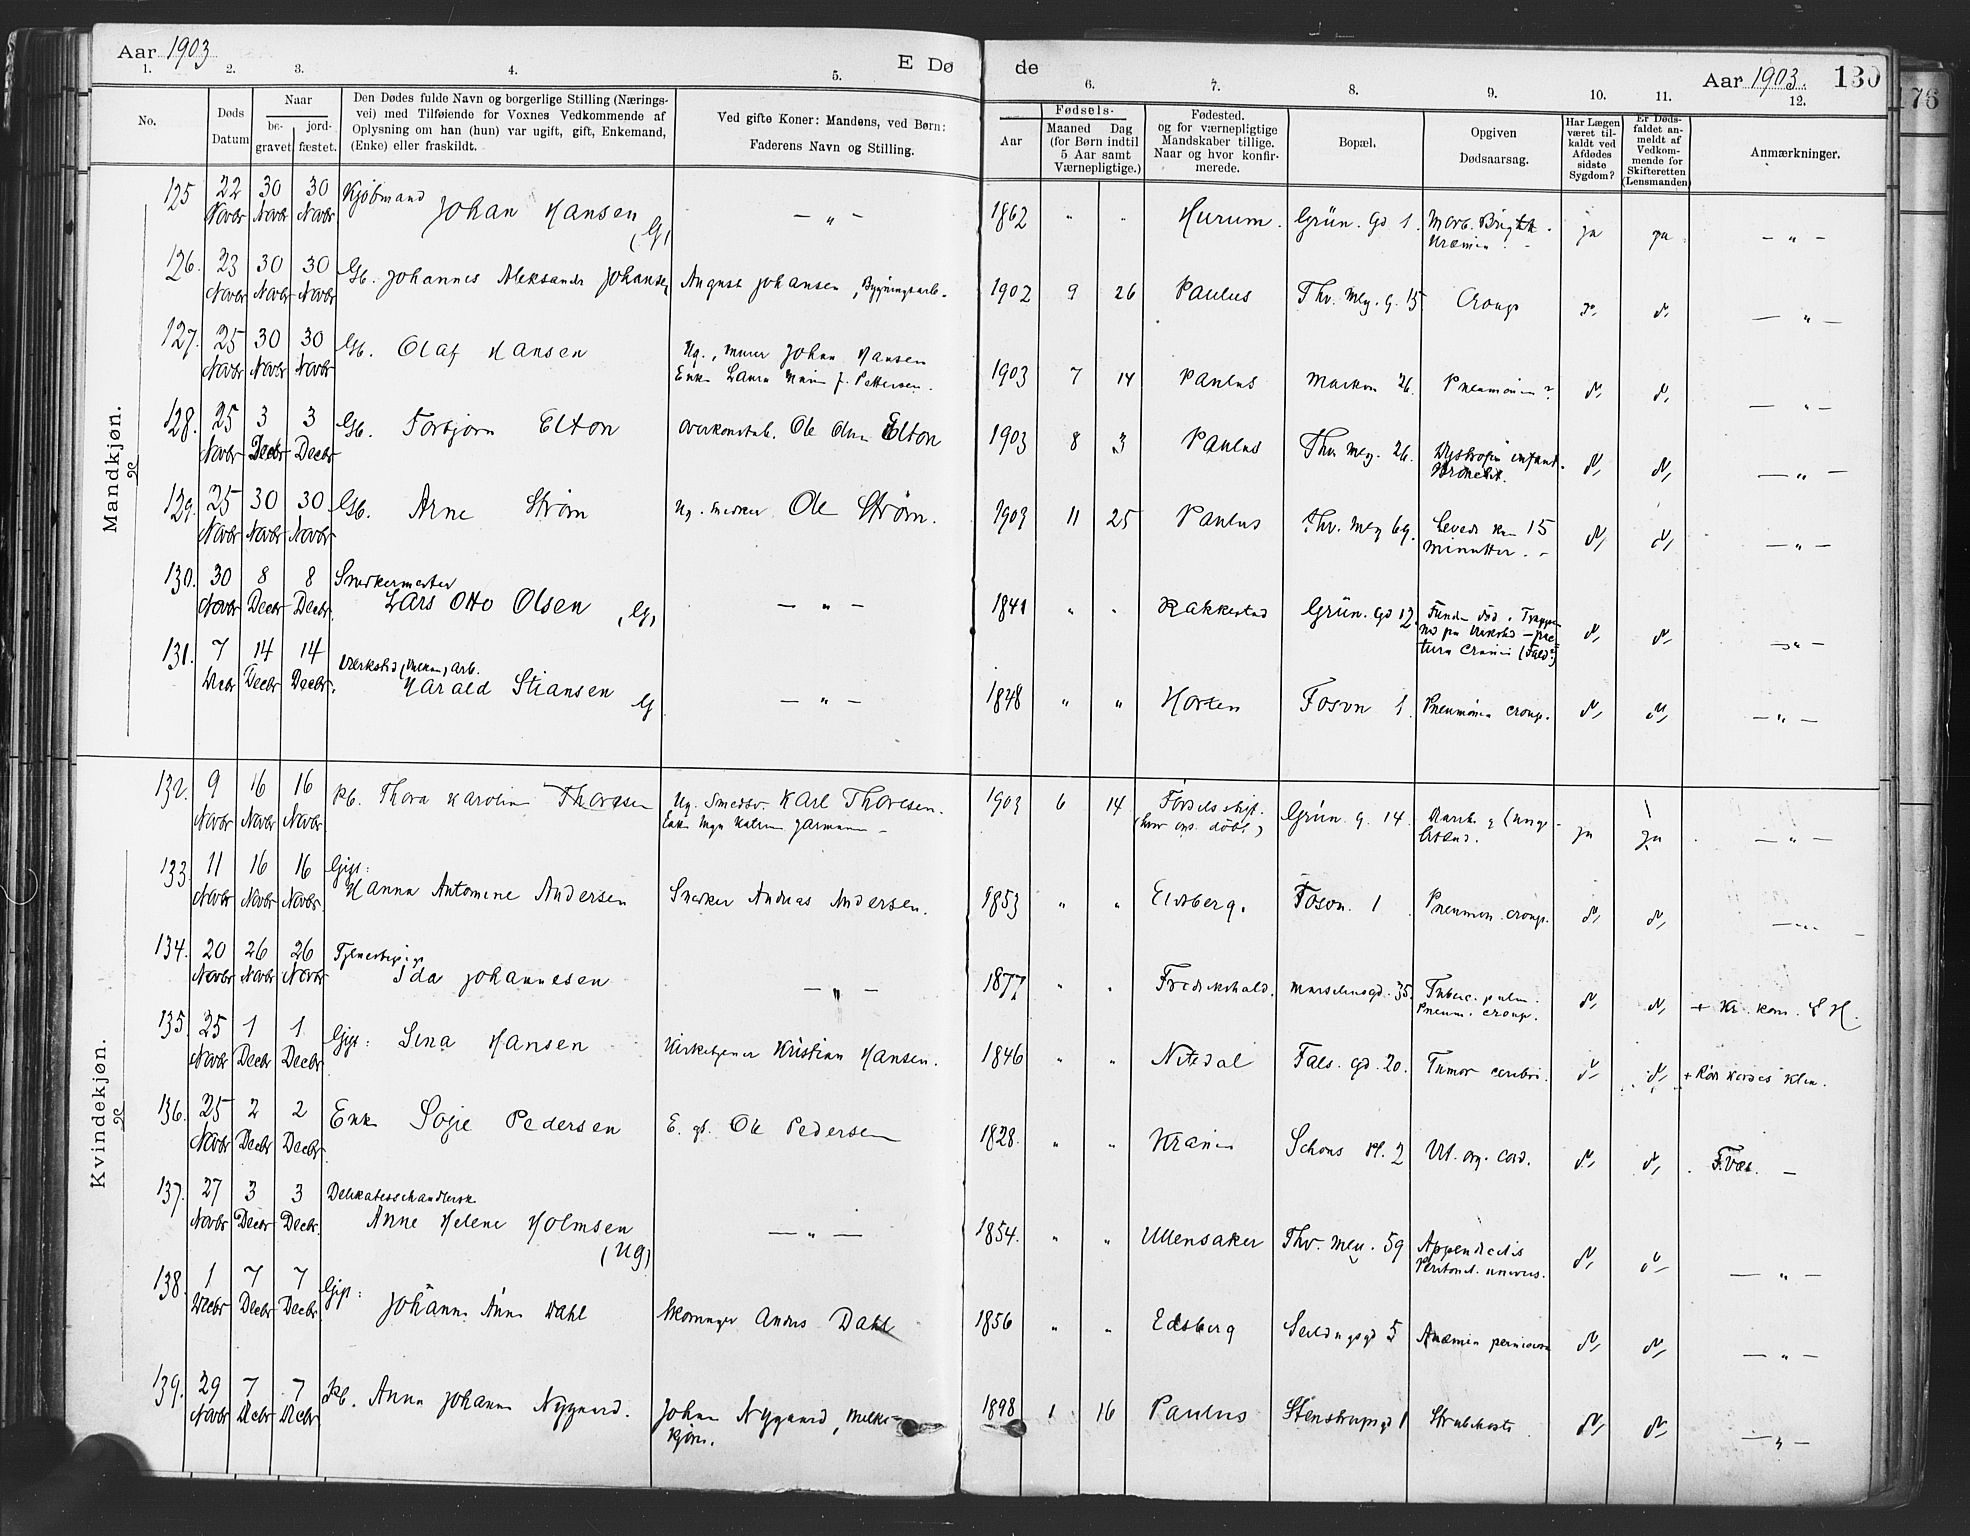 Aar 1903 E Dø de Aar 1903. 130
176
1. 2. 3. 4. 5. 6. 7. 8. 9. 10. 11. 12.
No.
Døds Datum
Naar be-gravet jord-fæstet.
Den Dødes fulde Navn og borgerlige Stilling (Nærings-
vei) med Tilføiende for Voxnes Vedkommende af
Oplysning om han (hun) var ugift, gift, Enkemand,
(Enke) eller fraskildt.
Ved gifte Koner: Mandens, ved Børn:
Faderens Navn og Stilling.
Fødsels-
Aar
Maaned Dag
(for Børn indtil
5 Aar samt
Værnepligtige.)
Fødested.
og for værnepligtige
Mandskaber tillige.
Naar og hvor konfir-
merede.
Bopæl.
Opgiven
Dødsaarsag.
Har Lægen
været til-
kaldt ved
Afdødes
sidste
Sygdom?
Er Døds-
faldet an-
meldt af
Vedkom-
mende for
Skifteretten
(Lensmanden)
Anmærkninger.
Mandkjøn.
125 22 Novbr 30 Novbr 30 Novbr Kjøbmand Johan Hansen (G) — " — 1862 " " Hurum. Grün. Gd 1. Morb. Brightii Uræmia. ja ja — " —
126. 23 Novbr 30 Novbr 30 Novbr Gb. Johannes Aleksander Johansen August Johansen, Bygningsarb. 1902 9 26 Paulus Thv. Mey. g. 15 Croup do do — " —
127. 25 Novbr 30 Novbr 30 Novbr Gb. Olaf Hansen Ug., murer Johan Hansen
Enke Laura f. Pettersen. 1903 7 14 Paulus Markv. 26. Pneumonia? do do — " —
128. 25 Novbr 3 Decbr 3 Decbr Gb. Torbjørn Elton Overkonstab. Ole Olsen Elton 1903 8 3 Paulus Thv. Mey. 26. Dystrofia infant. Bronchit. do do — " —
129. 25 Novbr 30 Novbr 30 Novbr Gb. Arne Strøm Ug. Snedker Ole Strøm. 1903 11 25 Paulus Thv. Mey 69. Levede kun 15
minutter. — do do — " —
130. 30 Novbr 8 Decbr 8 Decbr Snedkermester
Lars Otto Olsen (G) — " — 1841 " " Rakkestad Grün. Gd 12. Funden død i Trappen
ned paa Værksted — frac-
tura cranii (Fald?) do do — " —
131. 7 Decbr 14 Decbr 14 Decbr. Værksted (Vulkan) Arb.
Harald Stiansen G — " — 1848 " " Horten Fosvn 1. Pneumonia croup. do do — " —
Kvindekjøn.
132. 9 Novbr 16 Novbr 16 Novbr Pb. Thora Karoline Thoresen Ug. Smedsv. Karl Thoresen.
1903 6 14 Fødselsstift.
døbt) Grün. g. 14. ja ja — " —
133. 11 Novbr 16 Novbr 16 Novbr. Gift:
Hanna Antomine Andersen Snedker Andreas Andersen. 1853 " " Eidsberg. Fosvn. 1 Pneumon. croup. do do — " —
134. 20 Novbr 26 Novbr 26 Novbr Tjenestepige
Ida Johannesen — " — 1877 " " Fredrikshald. Marselisgd. 35. Tuberc. pulm.
Pneum. croup. do do + Kr. kom. S H.
135. 25 Novbr 1 Decbr 1 Decbr Gift: Sina Hansen Kirketjener Kristian Hansen. 1846 " " Nitedal Fals. gd. 20. Tumor cerebri. do do + Røde Kordes Klin.
136. 25 Novbr 2 Decbr 2 Decbr Enke Sofie Pedersen E. ef. Ole Pedersen 1828. " " Schous Pl. 2 Vit. org. cord. do do F.væs. —
137. 27 Novbr 3 Decbr 3 Decbr. Delikatessehandlerske
Anne Helene Holmsen (Ug) — " — 1854. " " Ullensaker Thv. Mey. 59 Appendicitis
Peritonit. univers. do do — " —
138. 1 Decbr 7 Decbr 7 Decbr. Gift:
Johanne Anna Dahl Skomager Anders Dahl 1856 " " Edsberg Seildugsgd 5 Anæmia perniciosa do do — " —
139. 29 Novbr 7 Decbr 7 Decbr Pb. Anna Johanne Nygaard. Johan Nygaard, Melke-
kjører. 1898 1 16 Paulus Stenstrupsgd 1 Strubehoste do do — " —